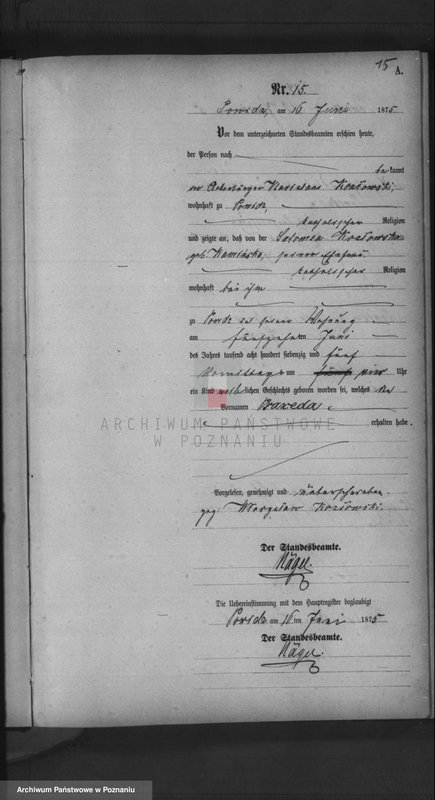 15
A.
Nr. 15.
Powidz, am 16 Juni 1875
Vor dem unterzeichneten Standesbeamten erschien heute,
der Person nach
bekannt
der Ackerbürger Kozłowski,
wohnhaft zu Powidz,
katholischer Religion
und zeigte an, daß von der Salomea Kozłowska
geb. Kamińska, seiner Ehefrau
katholischer Religion
wohnhaft bei ihm
zu Powidz in seiner Wohnung
am fünfzehnten Juni
des Jahres tausend acht hundert siebenzig und fünf
Vormittags um fünf vier Uhr
ein Kind weiblichen Geschlechts geboren worden sei, welches den
Vornamen
erhalten habe.
ARCHIWUM PAŃSTWOWE
W POZNANIU
Vorgelesen, genehmigt und unterschrieben
gez. Kozłowski.
Der Standesbeamte.
Nägel.
Die Uebereinstimmung mit dem Hauptregister beglaubigt
Powidz am 16ten Juni 1875
Der Standesbeamte.
Nägel.
Archiwum Państwowe w Poznaniu